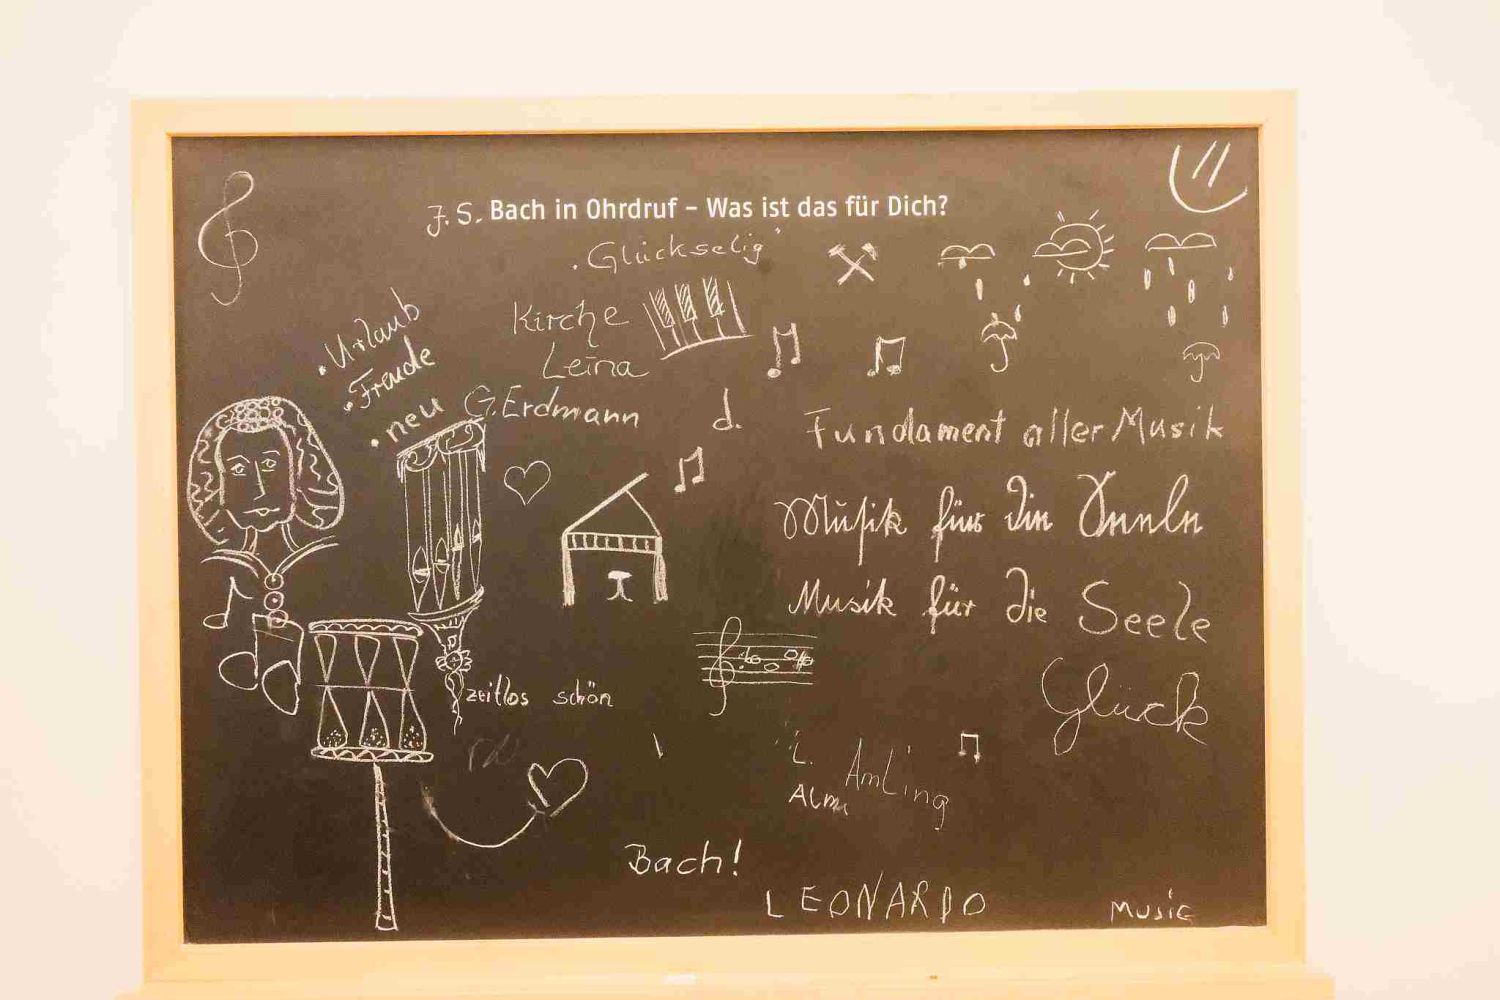 J. S. Bach in Ohrdruf – Was ist das für Dich?
. Glückselig
Kirche
Leina
G. Erdmann
• Urlaub
• Freude
• neu
Fundament aller Musik
Musik für die Seele
Musik für die Seele
Glück
zeitlos schön
L. Amling
Alma
Bach!
LEONARDO
Music